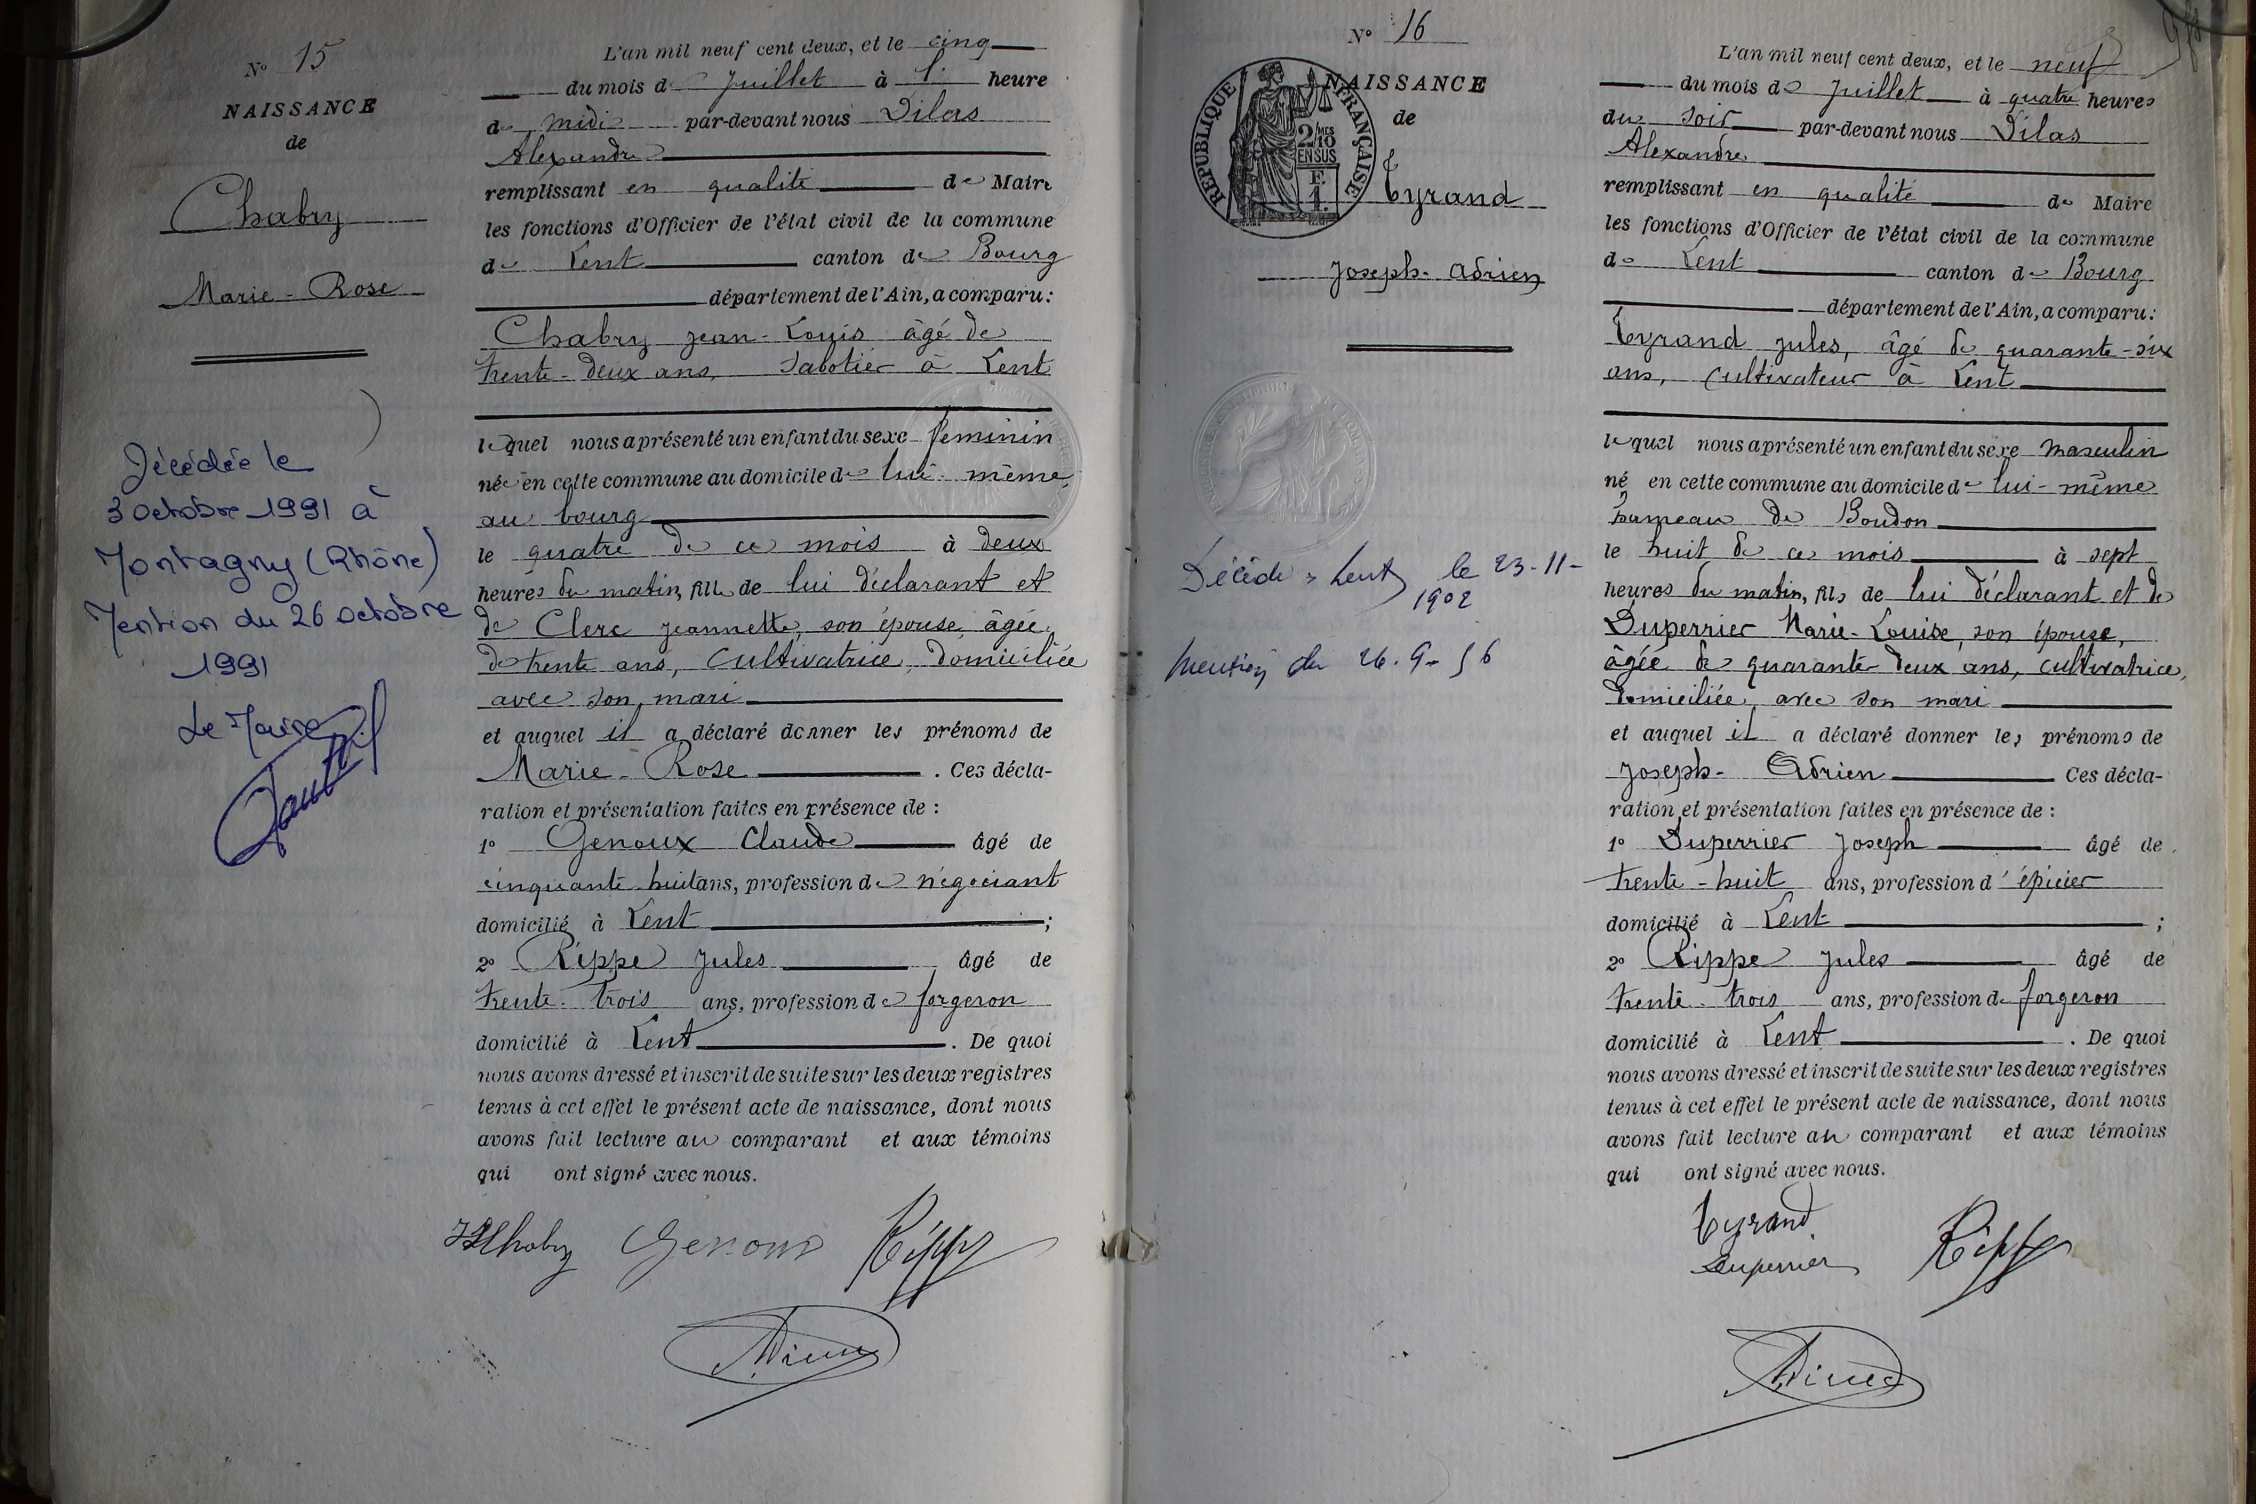 N° 15
NAISSANCE
de
Chabry
Marie-Rose
Décédée le
3 octobre 1991 à
Montagny (Rhône)
Mention du 26 octobre
1991
Le Maire
L'an mil neuf cent deux, et le cinq
du mois de Juillet à l' heure
de midi par-devant nous Dilas
Alexandre
remplissant en qualité de Maire
les fonctions d'Officier de l'état civil de la commune
de Lent canton de Bourg
département de l'Ain, a comparu :
Chabry Jean-Louis âgé de
trente-deux ans, sabotier à Lent
lequel nous a présenté un enfant du sexe féminin
née en cette commune au domicile de lui-même,
au bourg
le quatre de ce mois à deux
heures du matin, fille de lui déclarant et
de Clerc Jeannette, son épouse, âgée
de trente ans, cultivatrice, domiciliée
avec son mari
et auquel il a déclaré donner les prénoms de
Marie-Rose . Ces décla-
ration et présentation faites en présence de :
1° Genoux Claude âgé de
cinquante-huit ans, profession de négociant
domicilié à Lent ;
2° Rippe Jules âgé de
trente-trois ans, profession de forgeron
domicilié à Lent . De quoi
nous avons dressé et inscrit de suite sur les deux registres
tenus à cet effet le présent acte de naissance, dont nous
avons fait lecture au comparant et aux témoins
qui ont signé avec nous.
JLChabry Genoux Rippe
N° 16
REPUBLIQUE FRANÇAISE
2/10 MES
EN SUS
F.
1.
NAISSANCE
de
Tyrand
Joseph-Adrien
Décédé à Lent le 23-11-
1902
Mention du 26.9.56
L'an mil neuf cent deux, et le neuf
du mois de Juillet à quatre heures
du soir par-devant nous Dilas
Alexandre
remplissant en qualité de Maire
les fonctions d'Officier de l'état civil de la commune
de Lent canton de Bourg
département de l'Ain, a comparu :
Tyrand Jules, âgé de quarante-six
ans, cultivateur à Lent
lequel nous a présenté un enfant du sexe masculin
né en cette commune au domicile de lui-même
hameau de Boudon
le huit de ce mois à sept
heures du matin, fils de lui déclarant et de
Duperrier Marie-Louise, son épouse,
âgée de quarante-deux ans, cultivatrice,
domiciliée avec son mari
et auquel il a déclaré donner les prénoms de
Joseph-Adrien Ces décla-
ration et présentation faites en présence de :
1° Duperrier Joseph âgé de
trente-huit ans, profession d'épicier
domicilié à Lent ;
2° Rippe Jules âgé de
trente-trois ans, profession de forgeron
domicilié à Lent . De quoi
nous avons dressé et inscrit de suite sur les deux registres
tenus à cet effet le présent acte de naissance, dont nous
avons fait lecture au comparant et aux témoins
qui ont signé avec nous.
Tyrand
Duperrier Rippe